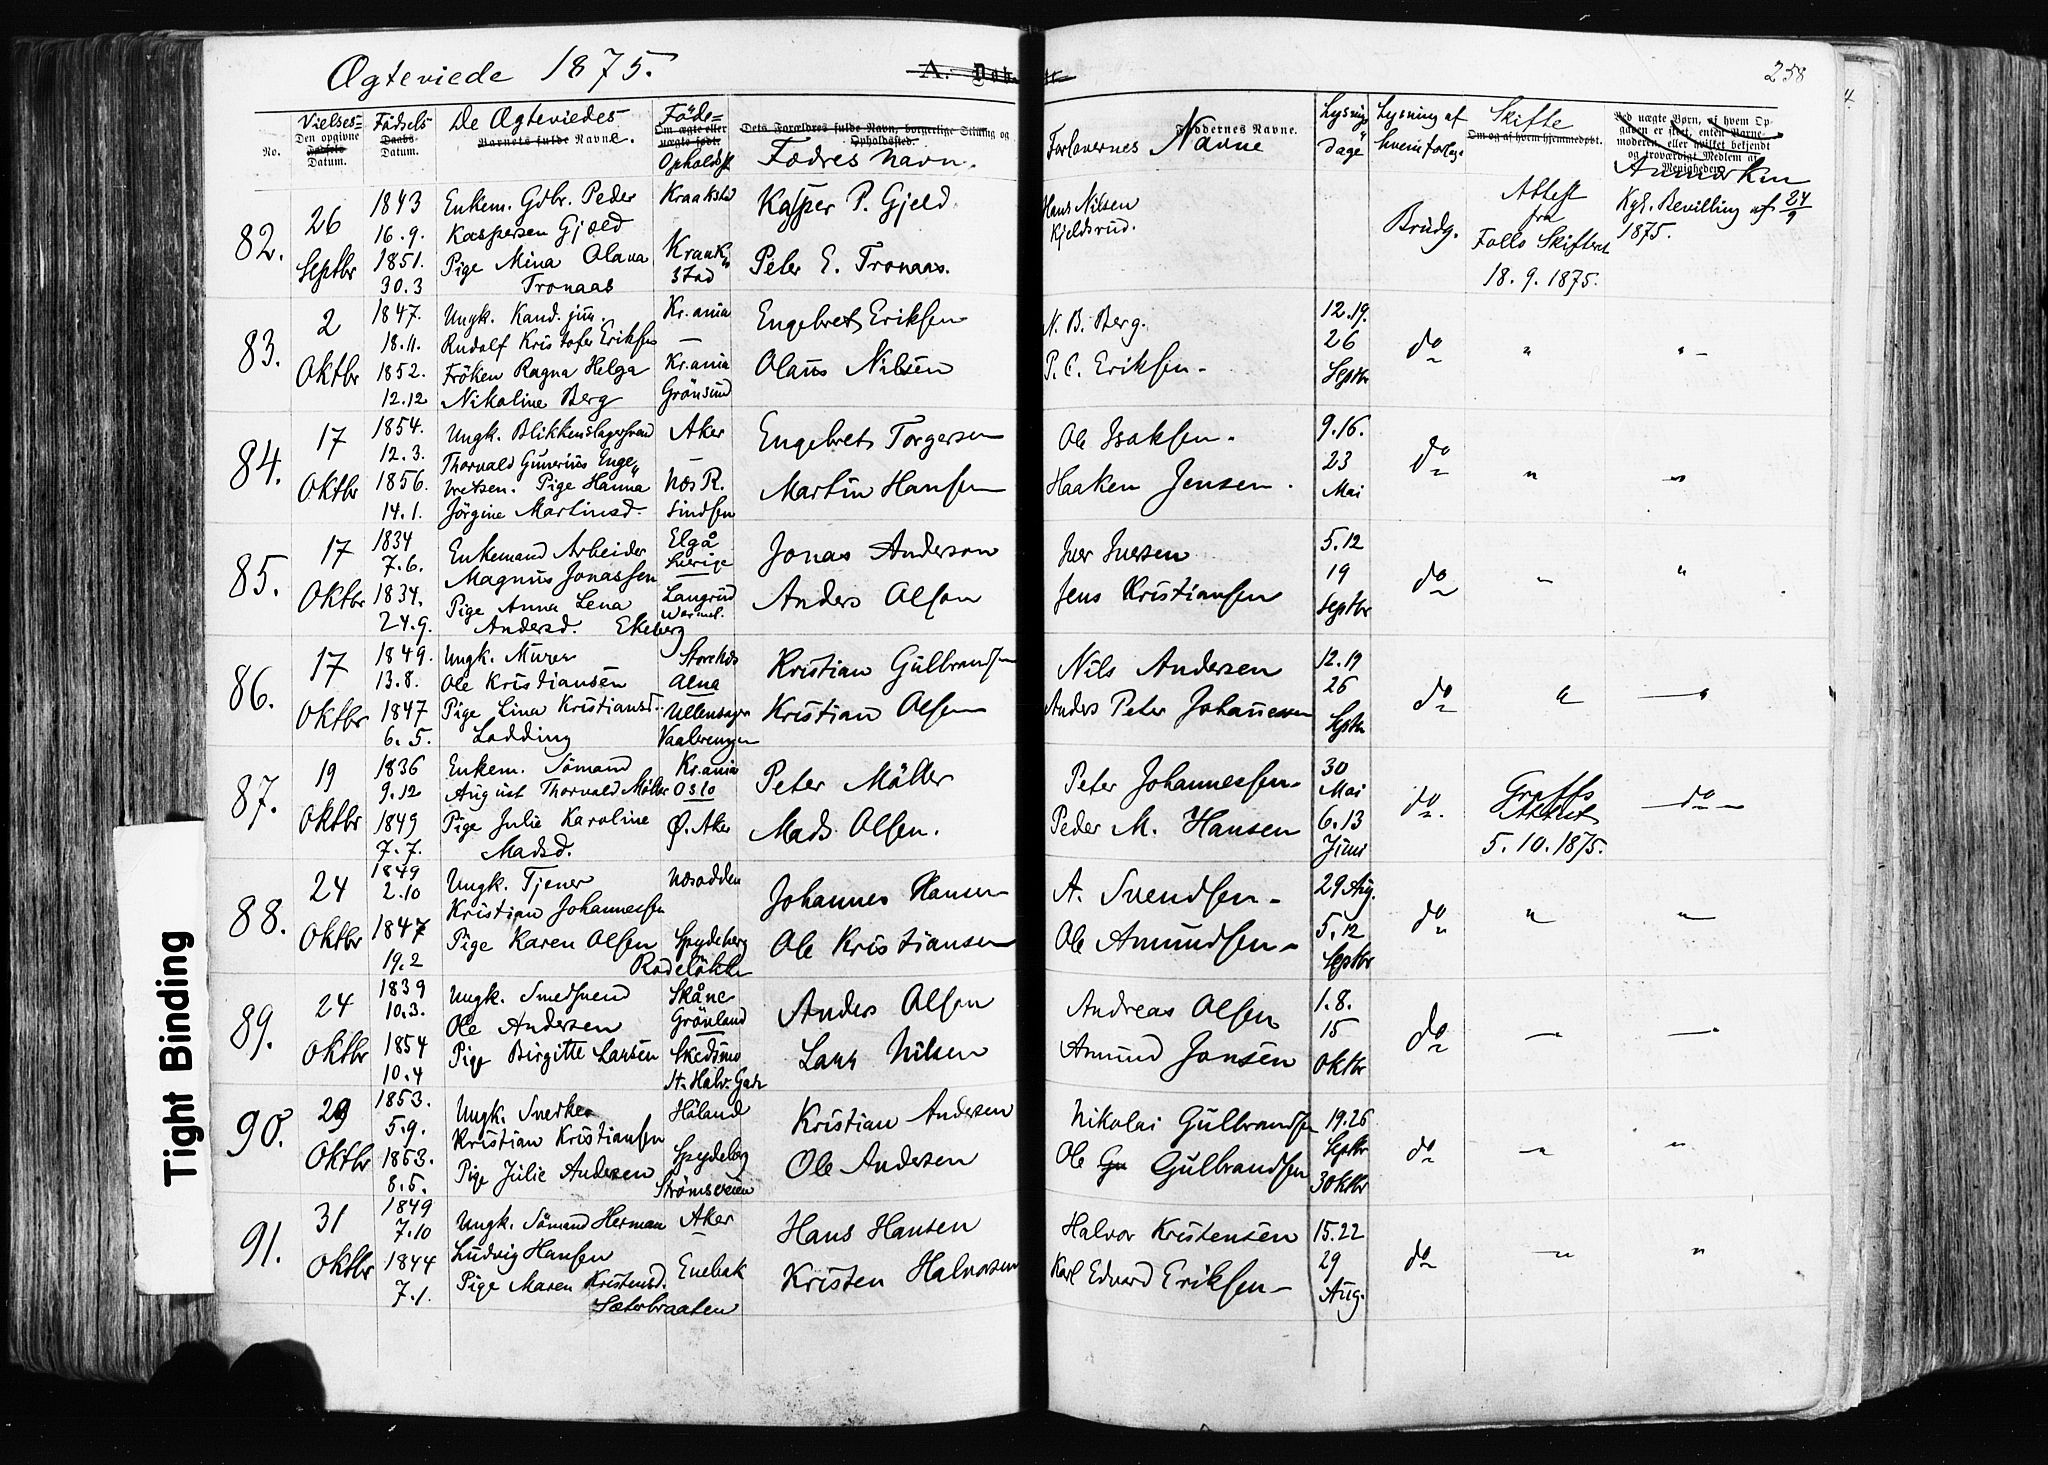 Ægteviede 1875.
A. Døb
258
No.
Vielses=
Den opgivne
Fødsels
Datum.
Fødsels
Daabs-
Datum.
De Ægteviedes
Barnets fulde Navne.
Føde=
Om ægte eller
uægte født.
Opholdsst
Dets Forældres fulde Navn, borgerlige Stilling og
Opholdssted.
Fædres Navn.
Faddernes Navne.
Forlovernes Navne
Lysnings
dage
Lysning af
hvem forlagt
Skifte
Om og af hvem hjemmedøbt.
Ved uægte Børn, af hvem Op-
gaven er skeet, enten Barne-
moderen, eller hvilket bekjendt
og troværdigt Medlem af
Menigheden.
Anmærkn
82.
26
Septbr
1843
16.9.
1851.
30.3
Enkem. Gdbr. Peder
Kaspersen Gjeld
Pige Mina Olava
Tronaas
Kraakstad
Kraak=
stad
Kasper P. Gjeld
Peter E. Tronaas.
Hans Nilsen
Kjeldsrud.
Brudg.
Attest
fra
Follo Skifteret
18.9.1875.
Kgl. Bevilling af 24/9
1875.
83.
2
Oktbr
1847.
18.11.
1852.
12.12
Ungk. Kand. jur.
Rudolf Kristofer Eriksen
Frøken Ragna Helga
Nikoline Berg
Kr.ania
Kr.ania
Grønsund
Engebret Eriksen
Olaus Nilsen
N. B. Berg.
P. C. Eriksen -
12.19.
26
Septbr
do
"
" -
84.
17
Oktbr
1854.
12.3.
1856.
14.1.
Ungk. Blikkenslagersvend
Thorvald Gunerius Enge=
bretsen. Pige Hanna
Jörgine Martinsd.
Aker
Næs R.
Sindsen
Engebret Torgersen
Martin Hansen
Ole Isaksen -
Haaken Jensen.
9.16.
23
Mai
do
"
"
85.
17
Oktbr
1834
7.6.
1834.
24.9.
Enkemand Arbeider
Magnus Jonassen
Pige Anna Lena
Andersd. Ekeberg
Elgå
Sverige
Langrud
Wermel.
Jonas Anderson
Anders Olson
Iver Iversen
Jens Kristiansen
5.12
19
Septbr
do
"
"
86.
17
Oktbr
1849.
13.8.
1847
6.5.
Ungk. Murer
Ole Kristiansen
Pige Lina Kristiansd.
Lodding
Alna
Ullensager
Vaalerengen
Kristian Gulbrandsen
Kristian Olsen
Nils Andersen
Anders Peter Johannesen
12.19
26
Septbr
do
"
"
87.
19
Oktbr
1836
9.12
1849
7.7.
Enkem. Sömand
August Thorvald Möller
Pige Julie Karoline
Madsd.
Kr.ania
Oslo
Ø. Aker
Peter Möller
Mads Olsen.
Peter Johannessen -
Peder M. Hansen
30
Mai
6.13
Juni
do.
Graffs
Attest
5.10.1875.
do
88.
24
Oktbr
1849
2.10
1847
19.2
Ungk. Tjener
Kristian Johannessen
Pige Karen Olsen
Næsodden
Spydeberg
Rodelökken
Johannes Hansen
Ole Kristiansen
A. Svendsen -
Ole Amundsen -
29 Aug.
5.12
Septbr
do
"
"
89.
24
Oktbr
1839
10.3.
1854
10.4
Ungk. Smedsvend
Ole Andersen
Pige Birgitte Larsen
Skåne
Grønland
Skedsmo
St. Halv. Gade
Anders Olsen
Lars Nilsen
Andreas Olsen
Amund Jonsen
1.8.
15
Oktbr
do
"
"
90.
29
Oktbr
1853.
5.9.
1853.
8.5.
Ungk. Snedker
Kristian Kristiansen
Pige Julie Andersen
Höland
Spydeberg
Strømsveien
Kristian Andersen
Ole Andersen
Nikolai Gulbrandsen
Ole Gu Gulbrandsen
19.26
Septbr
3 Oktbr
do
"
"
91.
31
Oktbr
1849
7.10
1844
7.1.
Ungk. Sömand Herman
Ludvig Hansen
Pige Maren Kristensd.
Sæterbraaten
Aker
Enebak
Hans Hansen
Kristen Halvorsen
Halvor Kristensen
Karl Edvard Eriksen -
15.22
29
Aug.
do
"
"
Tight Binding